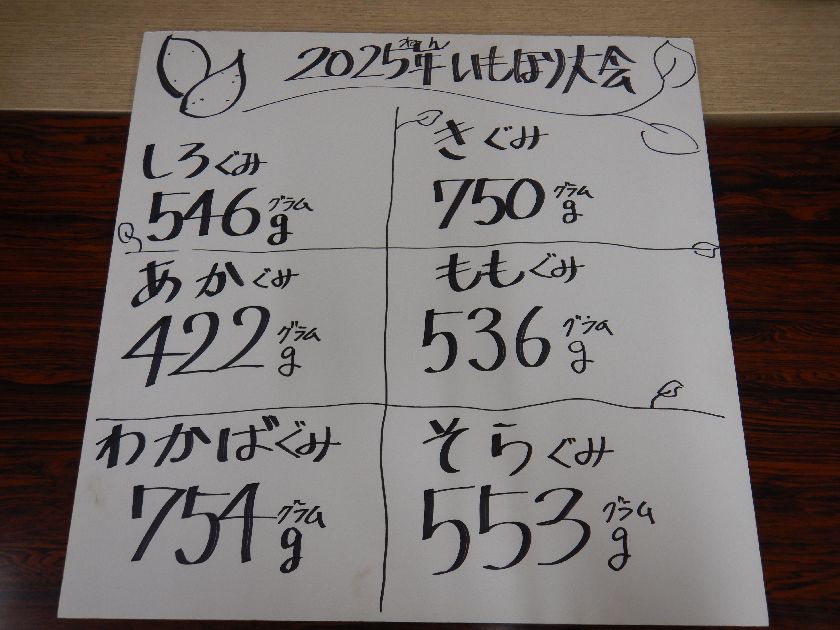 2025年いもほり大会
ねん
しろぐみ
546g
グラム
きぐみ
750g
グラム
あかぐみ
422g
グラム
ももぐみ
536g
グラム
わかばぐみ
754g
グラム
そらぐみ
553g
グラム